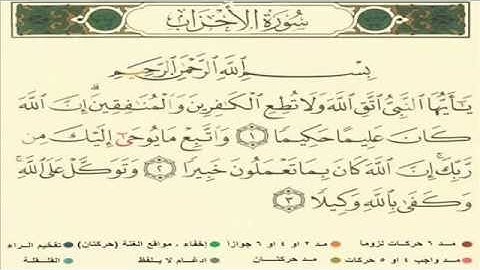 سُورَةُ الأَحْزَابِ
بِسْمِ ٱللَّهِ ٱلرَّحْمَٰنِ ٱلرَّحِيمِ
يَـٰٓأَيُّهَا ٱلنَّبِىُّ ٱتَّقِ ٱللَّهَ وَلَا تُطِعِ ٱلْكَـٰفِرِينَ وَٱلْمُنَـٰفِقِينَۗ إِنَّ ٱللَّهَ
كَانَ عَلِيمًا حَكِيمًا ١ وَٱتَّبِعْ مَا يُوحَىٰٓ إِلَيْكَ مِن
رَّبِّكَۚ إِنَّ ٱللَّهَ كَانَ بِمَا تَعْمَلُونَ خَبِيرًا ٢ وَتَوَكَّلْ عَلَى ٱللَّهِۚ
وَكَفَىٰ بِٱللَّهِ وَكِيلًا ٣
مد ٦ حركات لزوما مد ٢ او ٤ او ٦ جوازا إخفاء ، مواقع الغنة (حركتان) تفخيم الراء
مد واجب ٤ او ٥ حركات مد حركتان ادغام ، ما لا يلفظ القلقلة